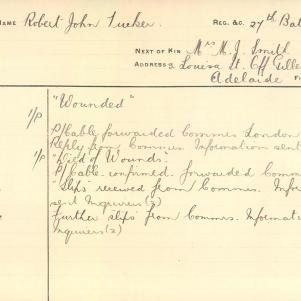 NAME Robert John Tucker. REG. &C. 27th Bat
NEXT OF KIN Mrs M. J. Smith
ADDRESS 3 Louisa St. Off Gille
Adelaide F
"Wounded"
1/p
P/Cable forwarded Commrs London
Reply from Commrs. Information sent
1/p "Died of Wounds".
P/Cable. confirmed. forwarded Comm
"Slips" received from Commrs. Infor
sent Inquirers(2)
Further slips from Commrs. Informat
Inquirers(2)